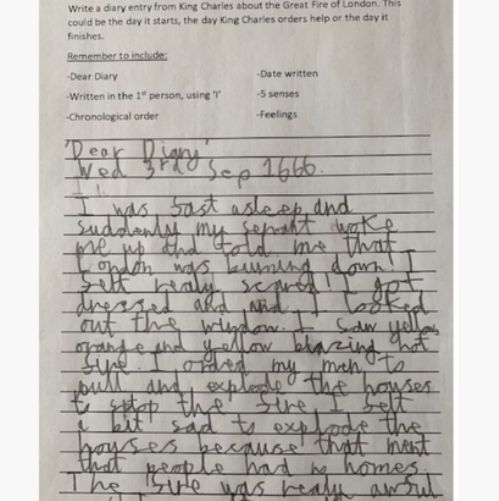 Write a diary entry from King Charles about the Great Fire of London. This
could be the day it starts, the day King Charles orders help or the day it
finishes.
Remember to include:
-Dear Diary
-Date written
-Written in the 1st person, using 'I'
-5 senses
-Chronological order
-Feelings
'Dear Diary'
Wed 3rd Sep 1666.
I was fast asleep and
suddenly my servant wake
me up and told me that
London was burning down! I
felt realy scared! I got
dressed and and I looked
out the window. I saw yellow
orange and yellow blazing hot
fire. I orderd my men to
pull and explode the houses
to stop the fire I felt
a bit sad to explode the
houses because that ment
that people had no homes.
The fire was realy awful